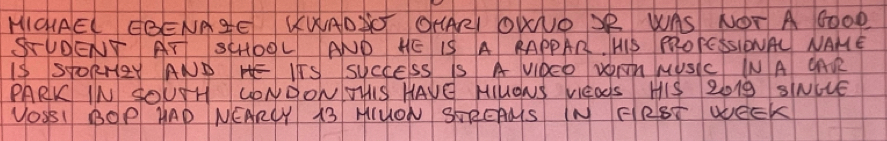 MICHAEL EBENAZE KWADJO OMARI OWUO JR WAS NOT A GOOD
STUDENT AT SCHOOL AND HE IS A RAPPAR. HIS PROFESSIONAL NAME
IS STORMZY AND HE ITS SUCCESS IS A VIDEO WITH MUSIC IN A CAR
PARK IN SOUTH LONDON. THIS HAVE MILIONS VIEWS HIS 2019 SINGLE
VOSSI BOP HAD NEARLY 13 MILION STREAMS IN FIRST WEEK